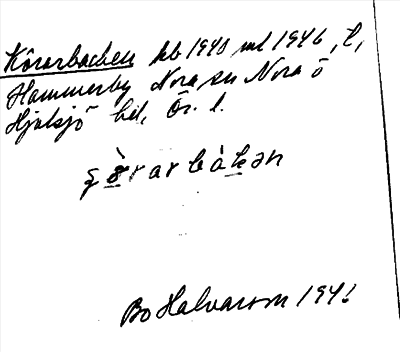 Körarbacken kb 1940 ml 1946, t,
Hammerby Nora sn Nora ö
Hjulsjö hd, Ör. l.
Bo Halvarson 1946